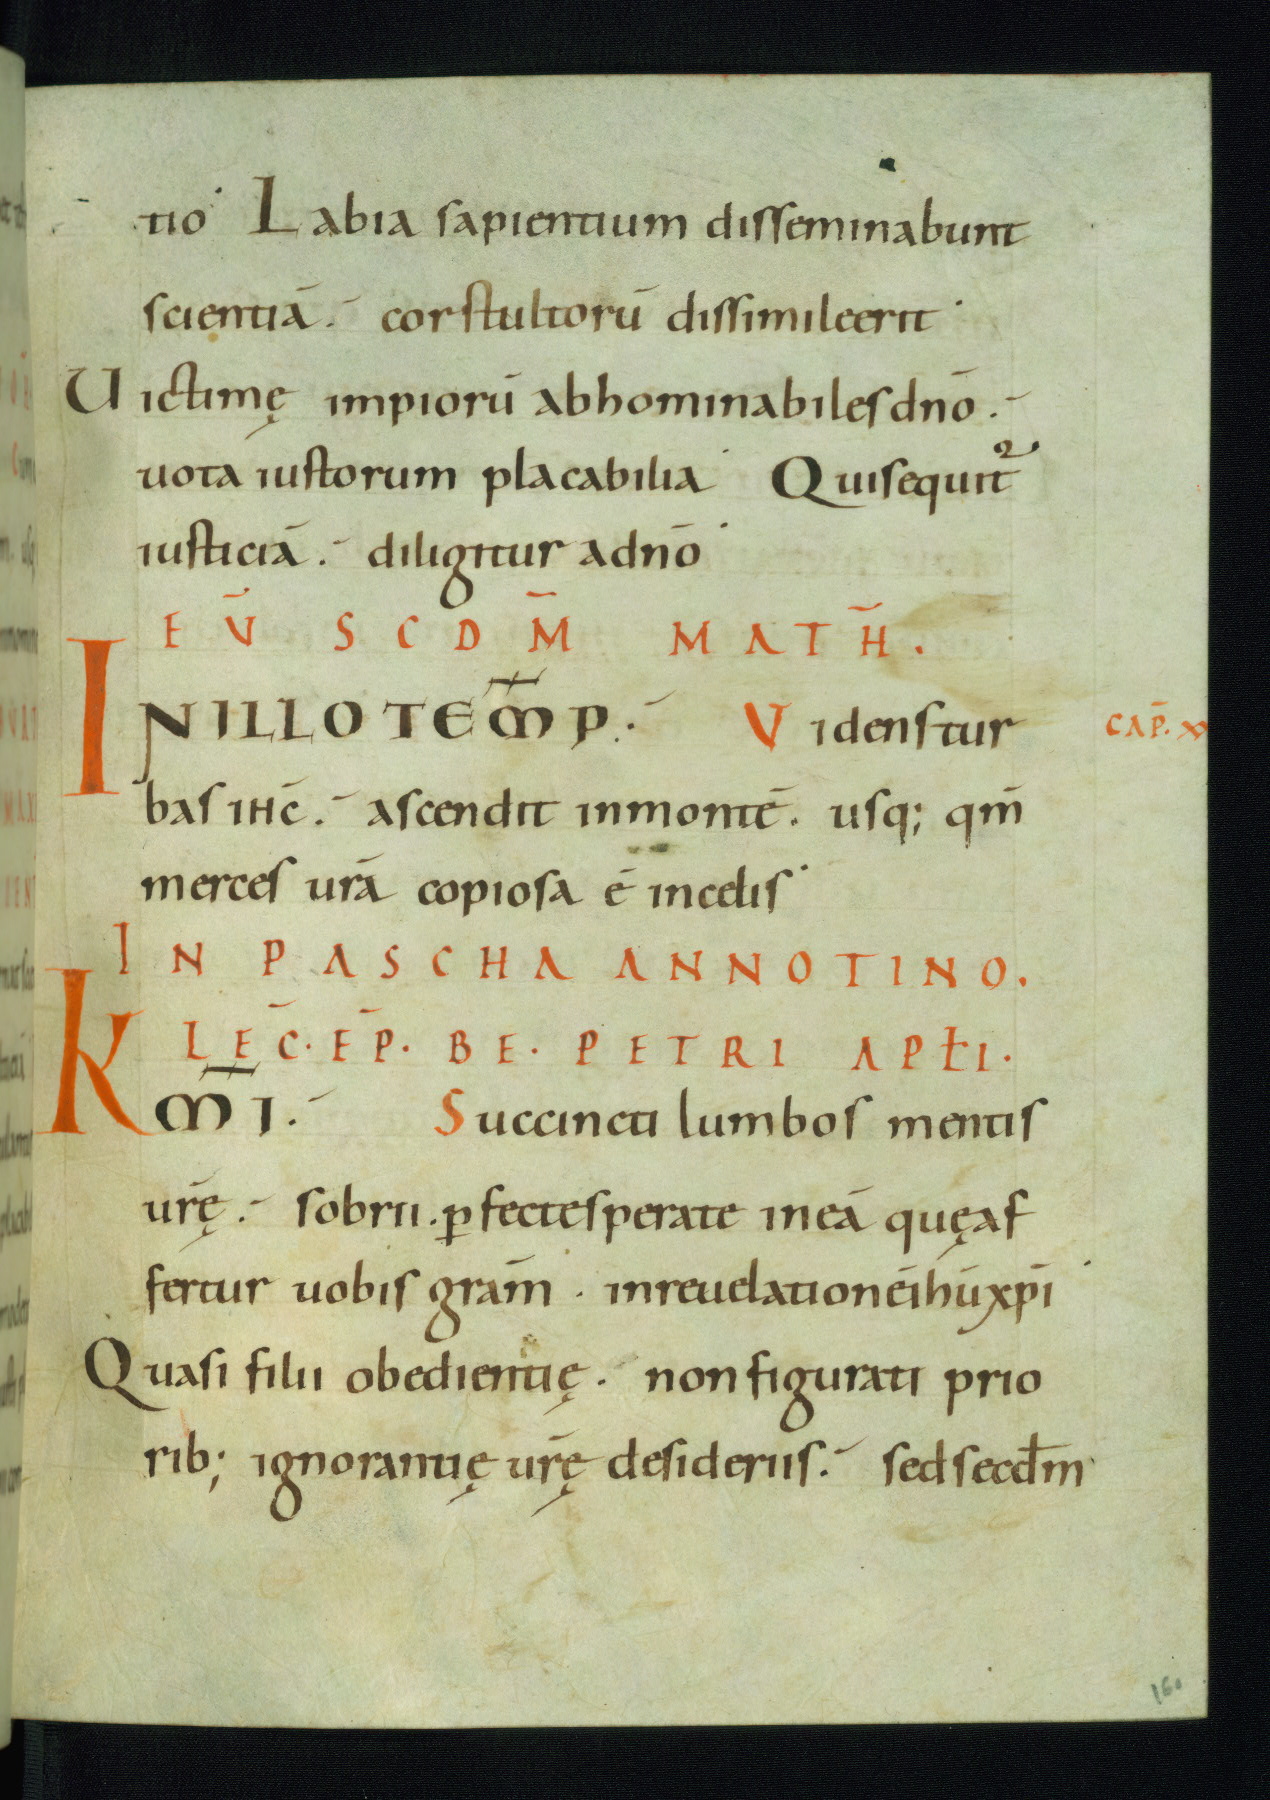 tio Labia sapientium disseminabunt
scientiā. cor stultorū dissimile erit
Uictimę impiorū abhominabiles dn̄o.
uota iustorum placabilia Qui sequit᷑
iusticiā. diligitur a dn̄o
EṼ SCDM̃ MATH̃.
IN ILLO TEM̃P. Videns tur CAP̃.
bas ihc̄. ascendit in montē. usq; qm̄
merces ur̄a copiosa ē in celis
IN PASCHA ANNOTINO.
LEC̄. EP̄. BE. PETRI APŁI.
KM̃I. Succincti lumbos mentis
ur̄ę. sobrii. ꝑfecte sperate in eā quę af
fertur uobis gram̄. in reuelationē ihū xpī
Quasi filii obedientię. non figurati prio
rib; ignorantię ur̄ę desideriis. sed secdm̄
160